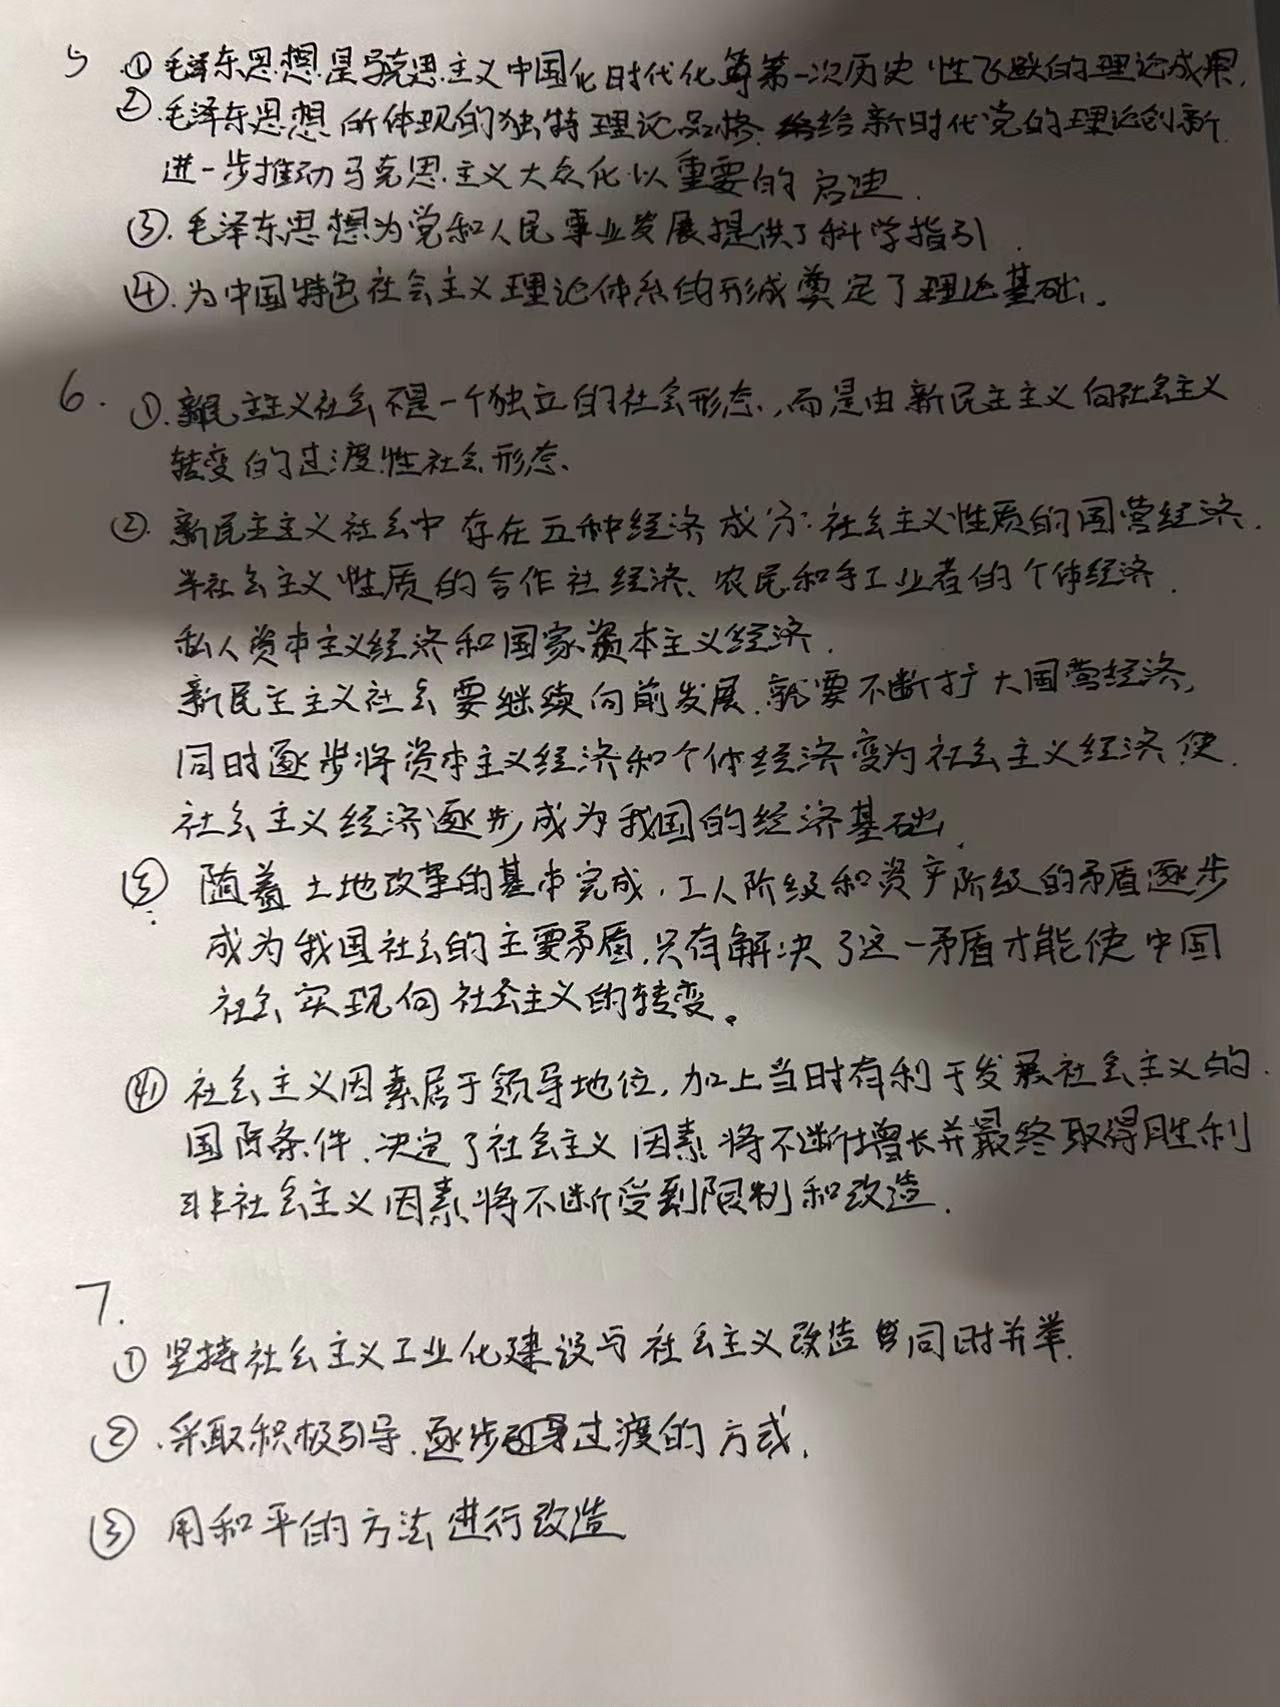 5 ① 毛泽东思想是马克思主义中国化时代化第一次历史性飞跃的理论成果.
②.毛泽东思想所体现的独特理论品格.给新时代党的理论创新
进一步推动马克思主义大众化以重要的启迪.
③.毛泽东思想为党和人民事业发展提供了科学指引.
④.为中国特色社会主义理论体系的形成奠定了理论基础.
6. ①.新民主主义社会不是一个独立的社会形态,而是由新民主主义向社会主义
转变的过渡性社会形态、
②. 新民主主义社会中存在五种经济成分:社会主义性质的国营经济.
半社会主义性质的合作社经济、农民和手工业者的个体经济.
私人资本主义经济和国家资本主义经济.
新民主主义社会要继续向前发展.就要不断扩大国营经济,
同时逐步将资本主义经济和个体经济变为社会主义经济使.
社会主义经济逐步成为我国的经济基础.
③ 随着土地改革的基本完成,工人阶级和资产阶级的矛盾逐步
成为我国社会的主要矛盾.只有解决了这一矛盾才能使中国
社会实现向社会主义的转变。
④ 社会主义因素居于领导地位,加上当时有利于发展社会主义的.
国际条件.决定了社会主义因素将不断增长并最终取得胜利
非社会主义因素将不断受到限制和改造.
7.
① 坚持社会主义工业化建设与社会主义改造同时并举.
②.采取积极引导.逐步过渡的方式.
③ 用和平的方法进行改造